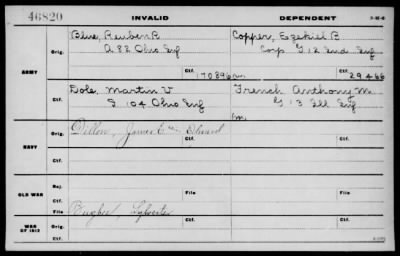 46820 INVALID DEPENDENT 3-M-6
Blue, Reuben R Copper, Ezekiel B
Orig. A 82 Ohio Inf Corp G 12 Ind Inf
ARMY
Ctf. 170896 Ctf. 29466
Dole, Martin V French Anthony M.
Orig. G 104 Ohio Inf G 13 Ill Inf
Ctf.
Dillon, James Edward
Orig. Ctf.
NAVY
Ctf.
Rej.
OLD WAR File File
Ctf.
Bugher, Sylvester
WAR OF 1812 Orig. Ctf.